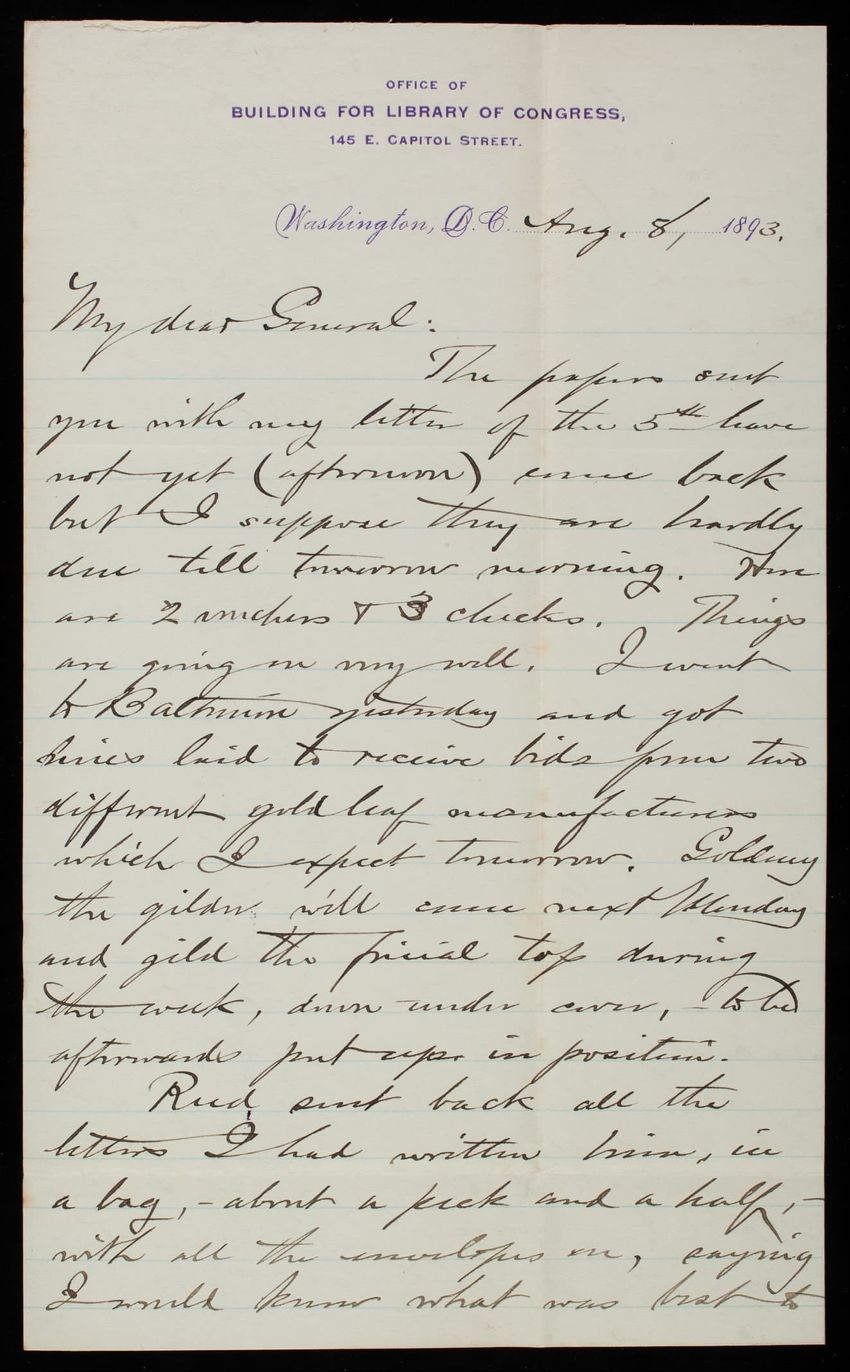 OFFICE OF
BUILDING FOR LIBRARY OF CONGRESS,
145 E. CAPITOL STREET.
Washington, D.C. Aug. 8, 1893.
My dear General:
The papers sent
you with my letter of the 5th have
not yet (afternoon) come back
but I suppose they are hardly
due till tomorrow morning. Here
are 2 vouchers & 3 checks. Things
are going on very well. I went
to Baltimore yesterday and got
lines laid to receive bids from two
different gold leaf manufacturers
which I expect tomorrow.
the gilder will come next Monday
and gild the finial top during
the week, down under cover, - to be
afterwards put up in position.
Reed sent back all the
letters I had written him, in
a bag, - about a peck and a half, -
with all the envelopes on, saying
I would know what was best to